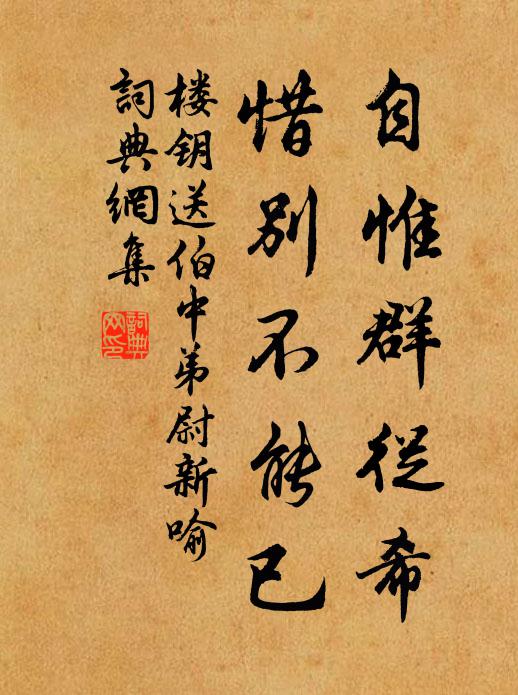 自惟群从希
惜别不能已
楼钥送伯中弟尉新喻
詞典網集
詞典
网印